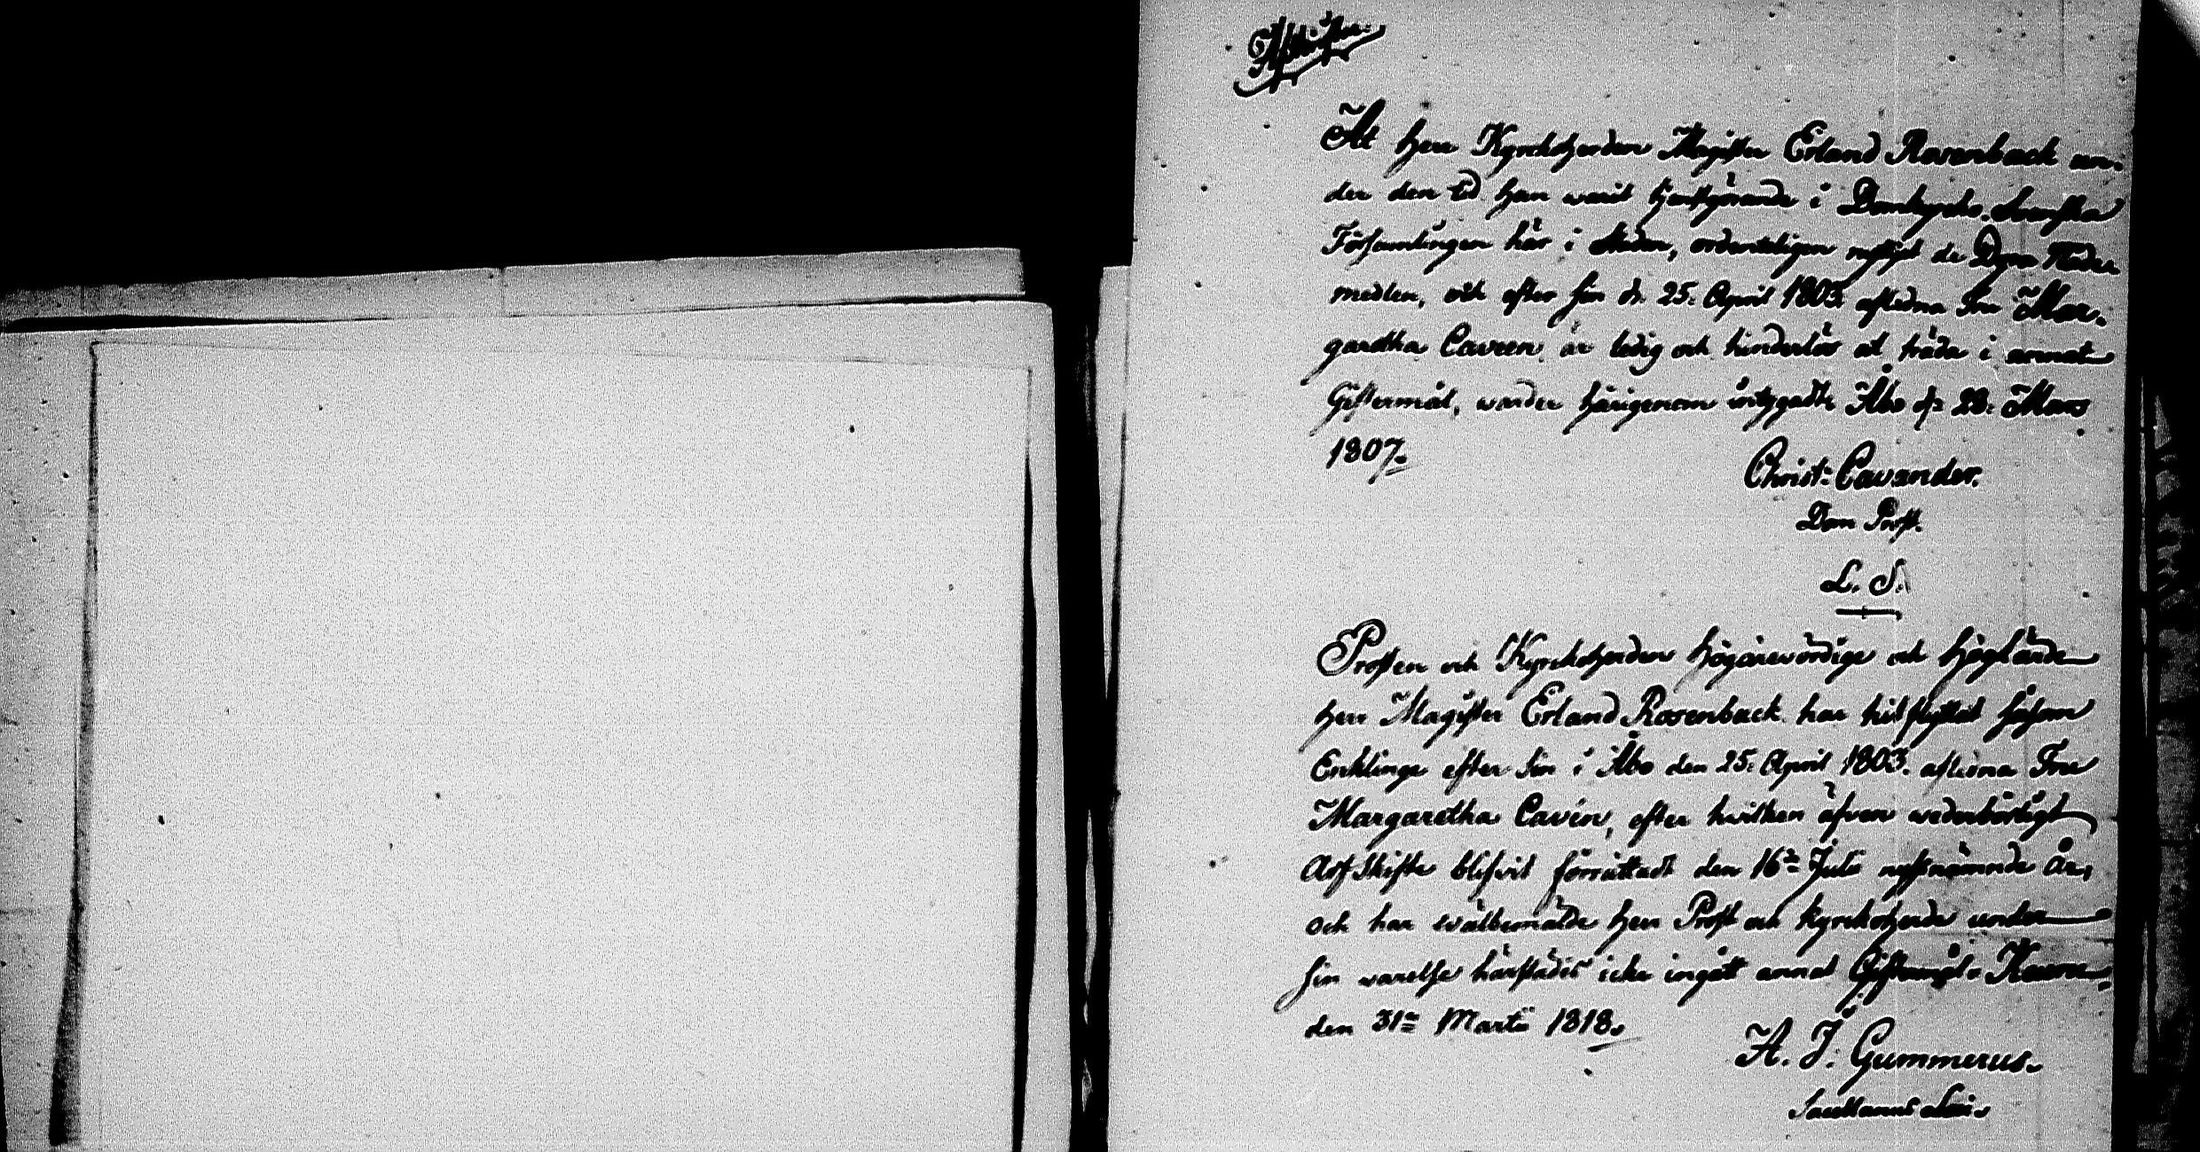 Afskrifter.
At Herr Kyrckoherden Magister Erland Rosenback un-
der den tid han warit tjenstgörande i Domkyrko Svenska
Församlingen här i Staden, ordenteligen nyttjat de Dyra Nåde
medlen, och efter sin d. 25. April 1803. aflidna Fru Mar-
garetha Caveen är ledig och hinderlös at träda i annat
Giftermål, warder härigenom intygadt. Åbo d. 28. Mars
1807.
Christ: Cavander.
Dom Prost.
L. S.
Prosten och Kyrckoherden Högärevördige och Höglärde
Herr Magister Erland Rosenback har hitflyttat såsom
Enklinge efter sin i Åbo den 25. April 1803. aflidna Fru
Margaretha Cavén, efter hvilken äfven wederbörligt
Arf Skifte blifvit förrättadt den 16de Julii nystnämnde År,
och har wälbemälde Herr Prost och Kyrckoherde under
sin warelse härstädes icke ingått annat Giftermål.
den 31te Martii 1818.
A. J. Gummerus.
Sacellanus